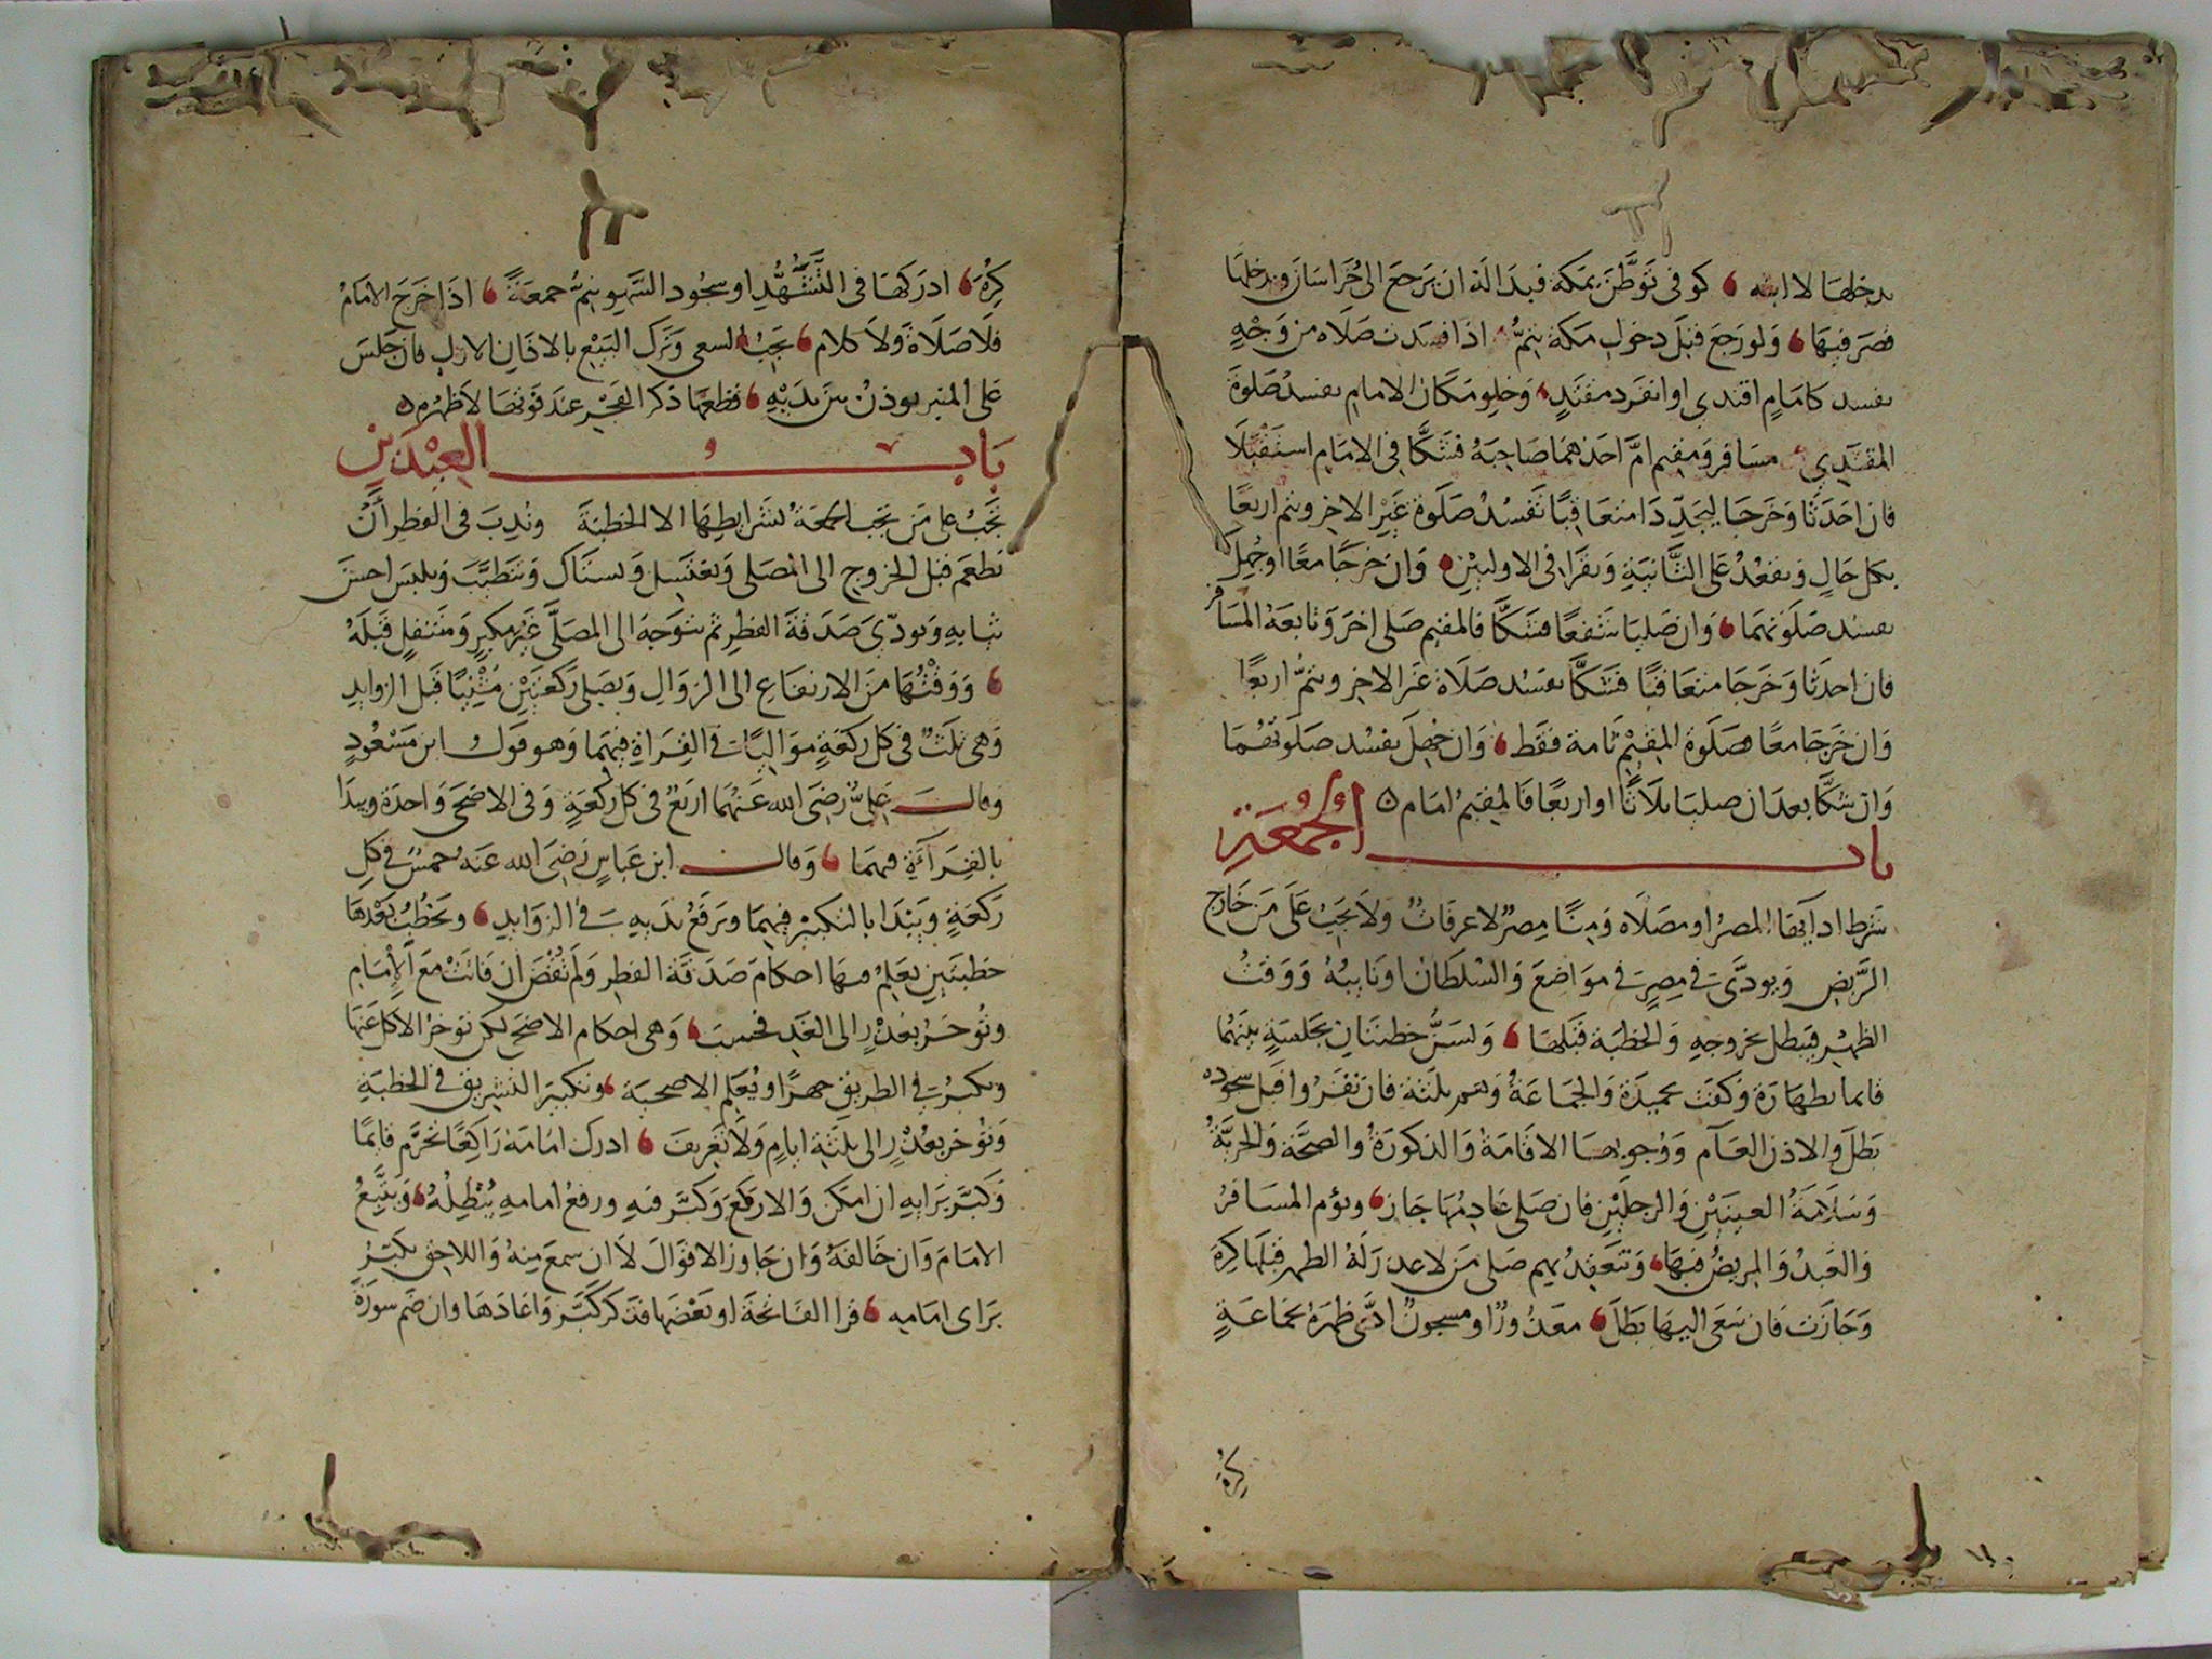 يدخلها لا ابنه كوفى توطن بمكة فبدا له ان يرجع الى خراسان ويدخلها
قصر فيها ولو رجع قبل دخول مكة يتم اذا فسدت صلاه من وجه
يفسد كامام اقتدى او انفرد مقتد وخلو مكان الامام يفسد صلوة
المقتدي مسافر ومقيم ام احدهما صاحبه فشكا في الامام استقبلا
فان احدثا وخرجا ليجددا متعاقبا تفسد صلوة غير الاخر ويتم اربعا
بكل حال ويقعد على الثانية ويقرا في الاوليين وان خرجا معا او جهل
يفسد صلوتهما وان صليا شفعا فشكا فالمقيم صلى اخر وتابعه المسافر
فان احدثا وخرجا متعاقبا فشكا يفسد صلاة غير الاخر ويتم اربعا
وان خرجا معا فصلوة المقيم تامة فقط وان جهل يفسد صلوتهما
وان شكا بعد ان صليا ثلاثا او اربعا فالمقيم امام
باب الجمعة
شرط ادايها المصر او مصلاه ومنا مصر لا عرفات ولا يجب على من خارج
الربض ويودى في مصر في مواضع والسلطان او نايبه ووقت
الظهر فيبطل بخروجه والخطبة قبلها ويسن خطبتان بجلسة بينهما
قايما بطهارة وكفت تحميدة والجماعة وهم ثلثة فان نفروا قبل سجوده
بطل والاذن العام ووجوبها الاقامة والذكورة والصحة والحرية
وسلامة العينين والرجلين فان صلى عادمها جاز ويؤم المسافر
والعبد والمريض فيها وتنعقد بهم صلى من لا عذر له الظهر قبلها كره
وجازت فان سعى اليها بطل معذور او مسجون ادى ظهره بجماعة
كره
كره ادركها في التشهد او سجود السهو يتم جمعة اذا خرج الامام
فلا صلاة ولا كلام يجب السعى وترك البيع بالاذان الاول فان جلس
على المنبر يوذن بين يديه قطعها ذكر الفجر عند فوتها لا ظهره
باب العيدين
تجب على من تجب الجمعة بشرايطها الا الخطبة وندب في الفطر أن
يطعم قبل الخروج الى المصلى ويغتسل ويستاك ويتطيب ويلبس احسن
ثيابه ويودي صدقة الفطر ثم يتوجه الى المصلى غير مكبر ومتنفل قبله
ووقتها من الارتفاع الى الزوال ويصلى ركعتين مثنيا قبل الزوايد
وهى ثلث في كل ركعة مواليا في القراة فيهما وهو قول ابن مسعود
وقال على رضى الله عنهما اربع في كل ركعة وفى الاضحى واحدة ويبدا
بالقراءة فيهما وقال ابن عباس رضى الله عنه خمس في كل
ركعة ويبدا بالتكبير فيهما ويرفع يديه في الزوايد ويخطب بعدها
خطبتين يعلم فيها احكام صدقة الفطر ولم تقض ان فاتت مع الامام
وتوخر بعذر الى الغد فحسب وهى احكام الاضحى لكن توخر الاكل عنها
ويكبر في الطريق جهرا ويعلم الاضحية وتكبير التشريق في الخطبة
وتوخر بعذر الى ثلثة ايام ولا تعريف ادرك امامه راكعا تحرم قايما
وكبر برايه ان امكن والا ركع وكبر فيه ورفع امامه يبطله ويتبع
الامام وان خالفه وان جاوز الاقوال لا ان سمع منه واللاحق يكبر
براى امامه قرا الفاتحة او بعضها فتذكر كبر واعادها وان ضم سورة